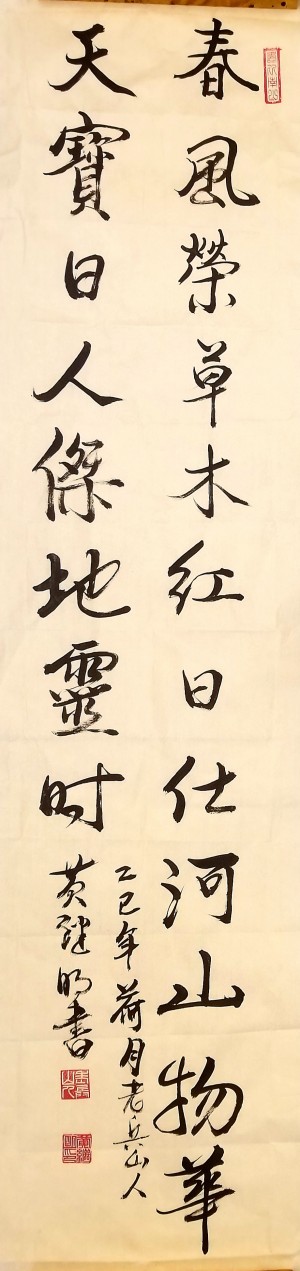 春風榮草木紅日仕河山物華
天寶日人傑地靈时
乙巳年荷月老兵山人
黄建明書